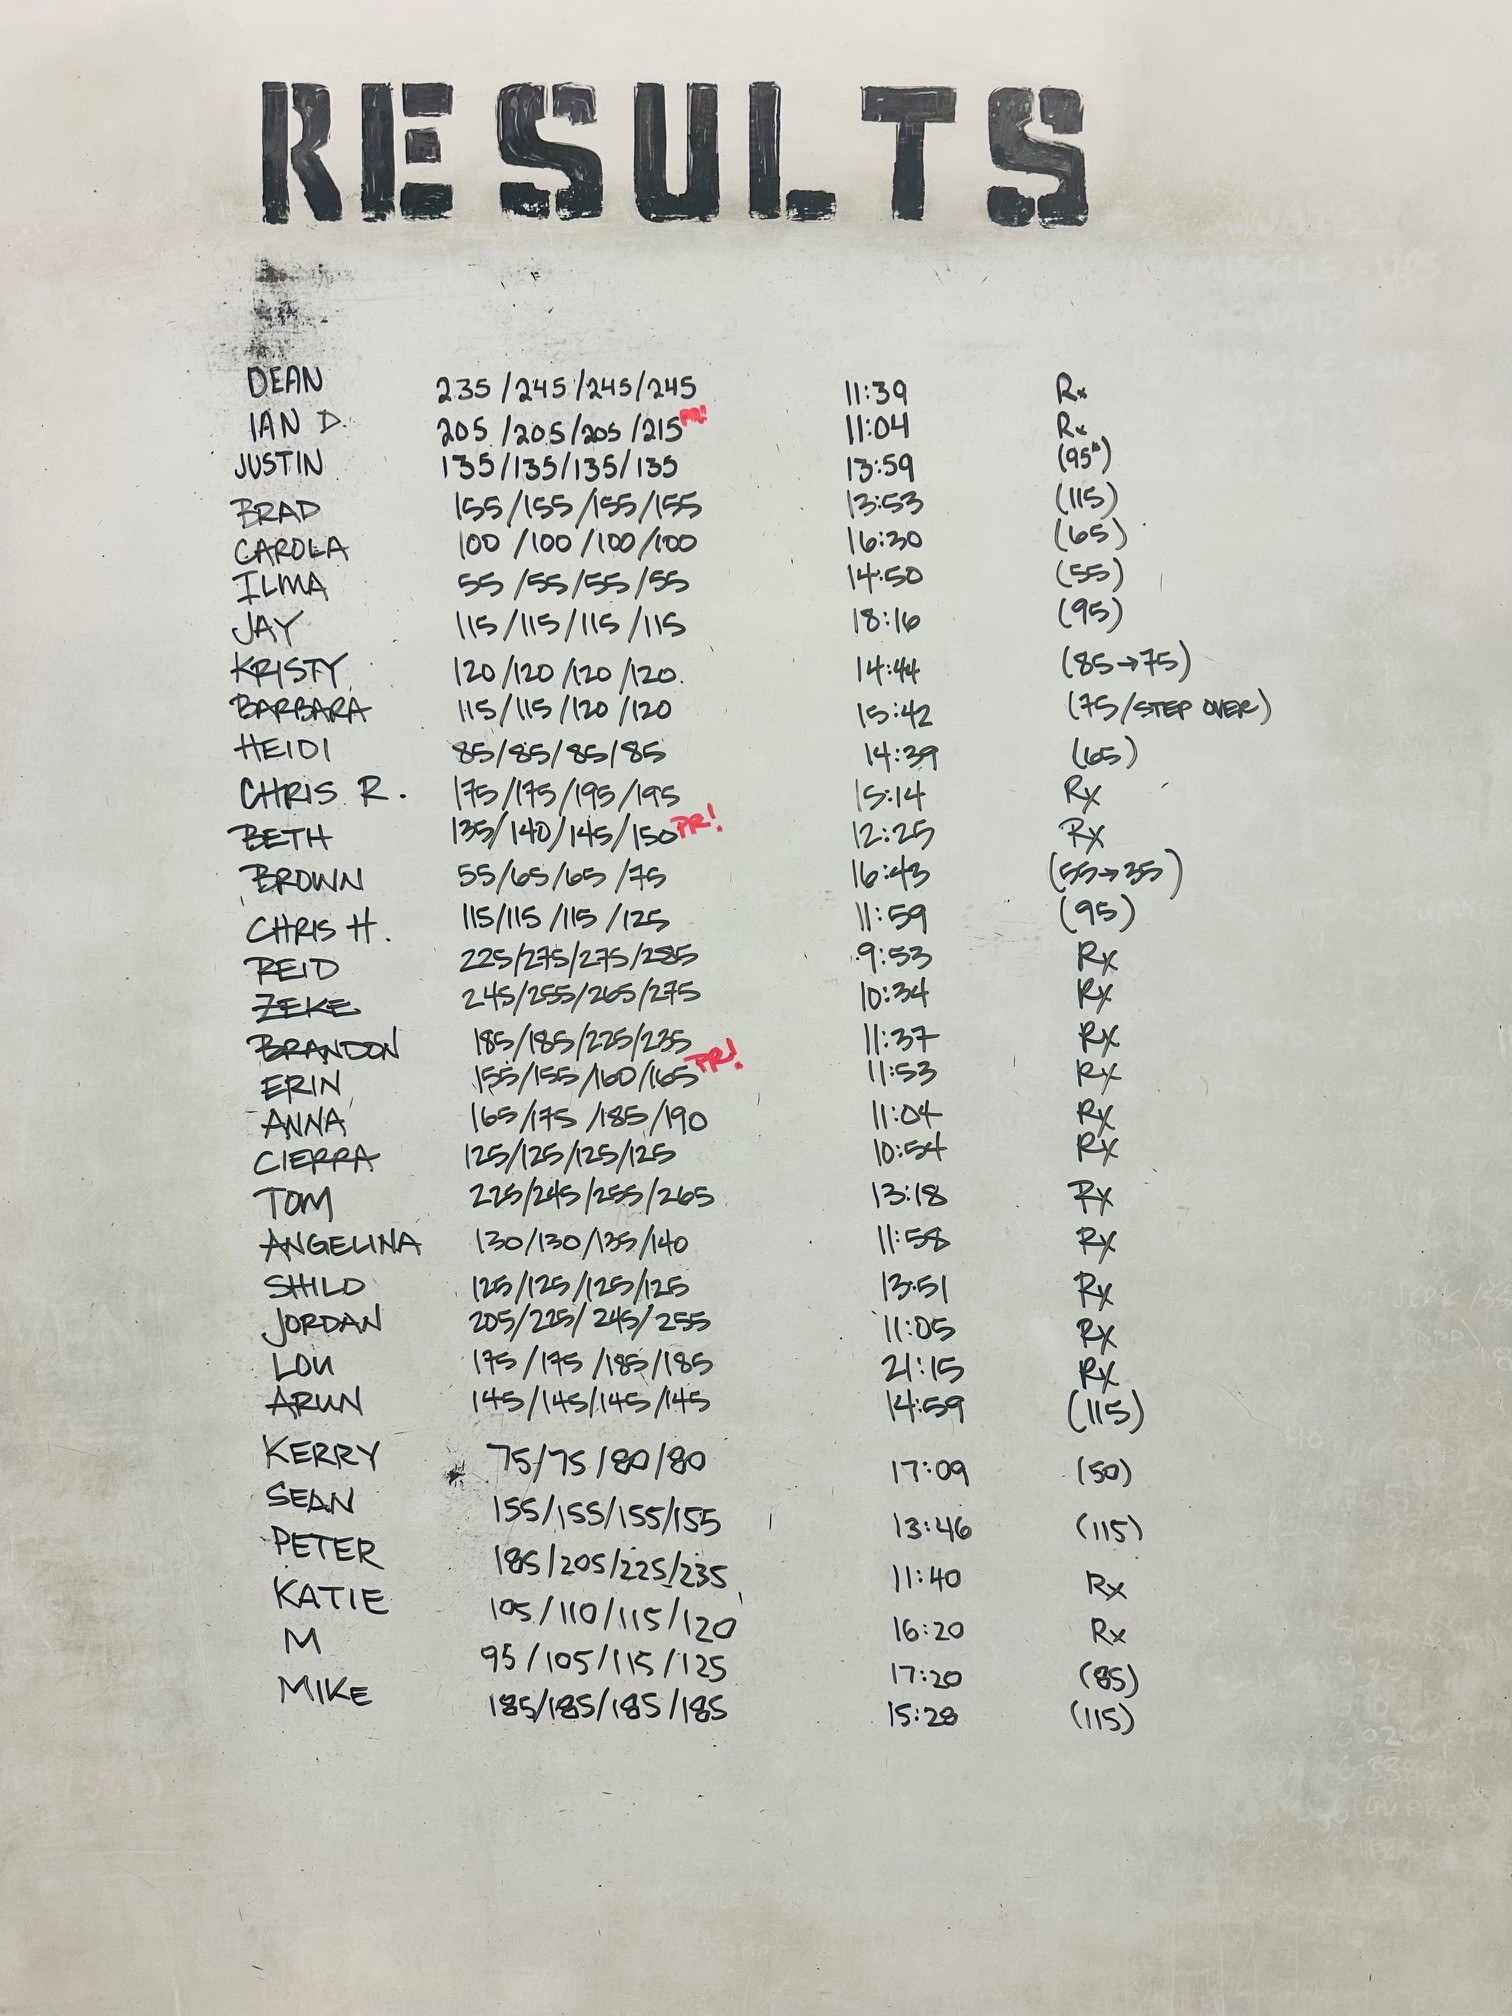 RESULTS
DEAN 235/245/245/245 11:39 Rx
IAN D. 205/205/205/215 PR! 11:04 Rx
JUSTIN 135/135/135/135 13:59 (95#)
BRAD 155/155/155/155 13:53 (115)
CAROLA 100/100/100/100 16:30 (65)
ILMA 55/55/55/55 14:50 (55)
JAY 115/115/115/115 18:16 (95)
KRISTY 120/120/120/120. 14:44 (85→75)
BARBARA 115/115/120/120 15:42 (75/STEP OVER)
HEIDI 85/85/85/85 14:39 (65)
CHRIS R. 175/175/195/195 15:14 Rx
BETH 135/140/145/150 PR! 12:25 Rx
BROWN 55/65/65/75 16:43 (55→35)
CHRIS H. 115/115/115/125 11:59 (95)
REID 225/275/275/285 9:53 Rx
ZEKE 245/255/265/275 10:34 Rx
BRANDON 185/185/225/235 11:37 Rx
ERIN 155/155/160/165 PR! 11:53 Rx
ANNA 165/175/185/190 11:04 Rx
CIERRA 125/125/125/125 10:54 Rx
TOM 225/245/255/265 13:18 Rx
ANGELINA 130/130/135/140 11:58 Rx
SHILO 125/125/125/125 13:51 Rx
JORDAN 205/225/245/255 11:05 Rx
LOU 175/175/185/185 21:15 Rx
ARUN 145/145/145/145 14:59 (115)
KERRY 75/75/80/80 17:09 (50)
SEAN 155/155/155/155 13:46 (115)
PETER 185/205/225/235 11:40 Rx
KATIE 105/110/115/120 16:20 Rx
M 95/105/115/125 17:20 (85)
MIKE 185/185/185/185 15:28 (115)